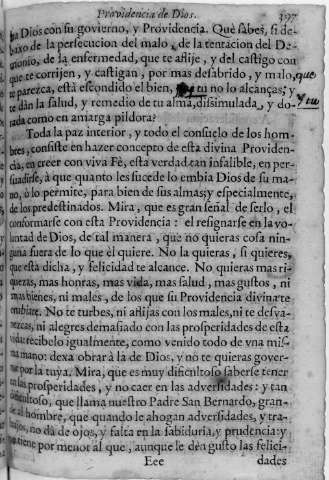 Providencia de Dios. 397
na Dios con su govierno, y Providencia. Què sabes, si de-
baxo de la persecucion del malo, de la tentacion del De-
monio, de la enfermedad, que te aflije, y del castigo con
que te corrijen, y castigan, por mas desabrido, y malo, que
te parezca, està escondido el bien, y tu no lo alcanças; y
te dàn la salud, y remedio de tu alma, dissimulada, y do- y tu
rada como en amarga pildora?
Toda la paz interior, y todo el consuelo de los hom-
bres, consiste en hazer concepto de esta divina Providen-
cia, en creer con viva Fè, esta verdad tan infalible, en per-
suadirse, à que quanto les sucede lo embia Dios de su ma-
no, ò lo permite, para bien de sus almas; y especialmente,
de los predestinados. Mira, que es gran señal de serlo, el
conformarse con esta Providencia: el resignarse en la vo-
luntad de Dios, de tal manera, que no quieras cosa nin-
guna fuera de lo que èl quiere. No la quieras, si quieres,
que esta dicha, y felicidad te alcance. No quieras mas ri-
quezas, mas honras, mas vida, mas salud, mas gustos, ni
mas bienes, ni males, de los que su Providencia divina te
embiare. No te turbes, ni aflijas con los males, ni te desva-
nezcas, ni alegres demasiado con las prosperidades de esta
vida: recibelo igualmente, como venido todo de vna mis-
ma mano: dexa obrar à la de Dios, y no te quieras gover-
nar por la tuya. Mira, que es muy dificultoso saberse tener
en las prosperidades, y no caer en las adversidades: y tan
dificultoso, que llama nuestro Padre San Bernardo, gran-
de al hombre, que quando le ahogan adversidades, y tra-
bajos, no dà de ojos, y falta en la sabiduria, y prudencia: y
no tiene por menor al que, aunque le dèn gusto las felici-
Eee dades